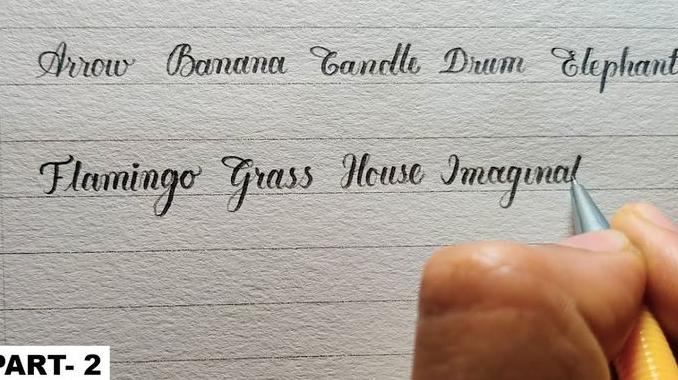 Arrow Banana Candle Drum Elephant
Flamingo Grass House Imaginat
PART- 2